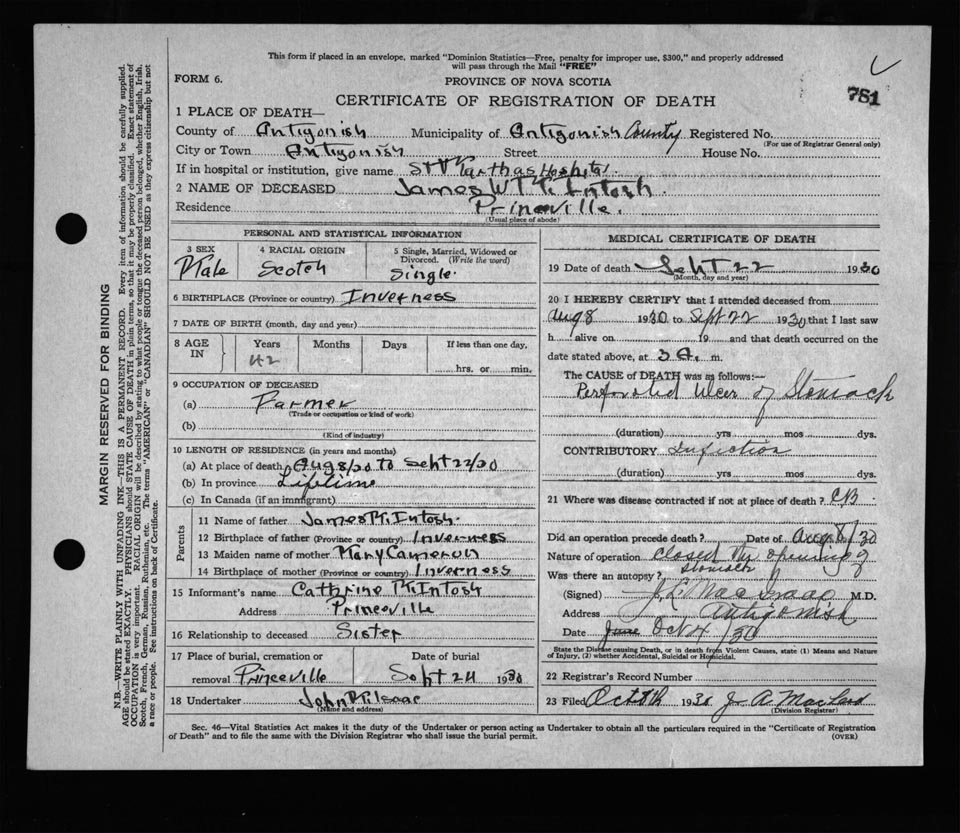 This form if placed in an envelope, marked "Dominion Statistics—Free, penalty for improper use, $300," and properly addressed
will pass through the Mail "FREE"
FORM 6.
PROVINCE OF NOVA SCOTIA
781
CERTIFICATE OF REGISTRATION OF DEATH
1 PLACE OF DEATH—
County of Antigonish Municipality of Antigonish County Registered No.
(For use of Registrar General only)
City or Town Antigonish Street House No.
If in hospital or institution, give name St Marthas Hospital.
2 NAME OF DECEASED James W McIntosh.
Residence Princeville.
(Usual place of abode)
PERSONAL AND STATISTICAL INFORMATION
3 SEX 4 RACIAL ORIGIN 5 Single, Married, Widowed or
Divorced. (Write the word)
Male Scotch Single.
6 BIRTHPLACE (Province or country) Inverness
7 DATE OF BIRTH (month, day and year)
8 AGE IN Years Months Days If less than one day,
42
hrs. or min.
9 OCCUPATION OF DECEASED
(a) Farmer
(Trade or occupation or kind of work)
(b)
(Kind of industry)
10 LENGTH OF RESIDENCE (in years and months)
(a) At place of death Aug 8/30 to Sept 22/30
(b) In province Lifetime
(c) In Canada (if an immigrant)
Parents
11 Name of father James McIntosh.
12 Birthplace of father (Province or country) Inverness
13 Maiden name of mother Mary Cameron
14 Birthplace of mother (Province or country) Inverness
15 Informant's name Cathrine McIntosh
Address Princeville
16 Relationship to deceased Sister
17 Place of burial, cremation or Date of burial
removal Princeville Sept 24 1930
18 Undertaker John McIsaac
(Name and address)
MEDICAL CERTIFICATE OF DEATH
19 Date of death Sept 22 1930
(Month, day and year)
20 I HEREBY CERTIFY that I attended deceased from
Aug 8 1930 to Sept 22 1930 that I last saw
h alive on 19 and that death occurred on the
date stated above, at 3 a. m.
The CAUSE of DEATH was as follows:—
Perforated Ulcer of Stomach
(duration) yrs mos dys.
CONTRIBUTORY Infection
(duration) yrs mos dys.
21 Where was disease contracted if not at place of death? CB
Did an operation precede death? Date of Aug 8/30
Nature of operation closed the opening of
stomach
Was there an autopsy?
(Signed) J. MacIsaac M.D.
Address Antigonish
Date June Oct 4/30
State the Disease causing Death, or in death from Violent Causes, state (1) Means and Nature
of Injury, (2) whether Accidental, Suicidal or Homicidal.
22 Registrar's Record Number
23 Filed Oct 8th 1930 J. A. MacLeod
(Division Registrar)
Sec. 46—Vital Statistics Act makes it the duty of the Undertaker or person acting as Undertaker to obtain all the particulars required in the "Certificate of Registration
of Death" and to file the same with the Division Registrar who shall issue the burial permit.
(OVER)
MARGIN RESERVED FOR BINDING
N.B.—WRITE PLAINLY WITH UNFADING INK—THIS IS A PERMANENT RECORD. Every item of information should be carefully supplied.
AGE should be stated EXACTLY. PHYSICIANS should STATE CAUSE OF DEATH in plain terms, so that it may be properly classified. Exact statement of
OCCUPATION is very important. RACIAL ORIGIN will be described by stating to what people or tongue the deceased person belonged, whether English, Irish,
Scotch, French, German, Russian, Ruthenian, etc. The terms "AMERICAN" or "CANADIAN" SHOULD NOT BE USED as they express citizenship but not
a race or people. See instructions on back of Certificate.